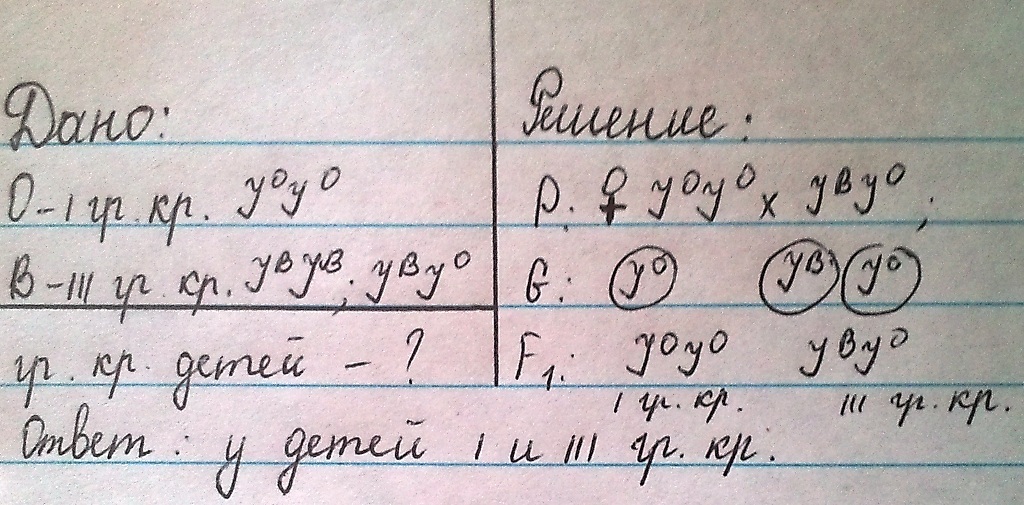 Дано:
О-I гр. кр. y⁰y⁰
В-III гр. кр. yᴮyᴮ; yᴮy⁰
гр. кр. детей - ?
Решение:
P: ♀ y⁰y⁰ x yᴮy⁰;
G: y⁰ yᴮ y⁰
F₁: y⁰y⁰ yᴮy⁰
I гр. кр. III гр. кр.
Ответ: у детей I и III гр. кр.